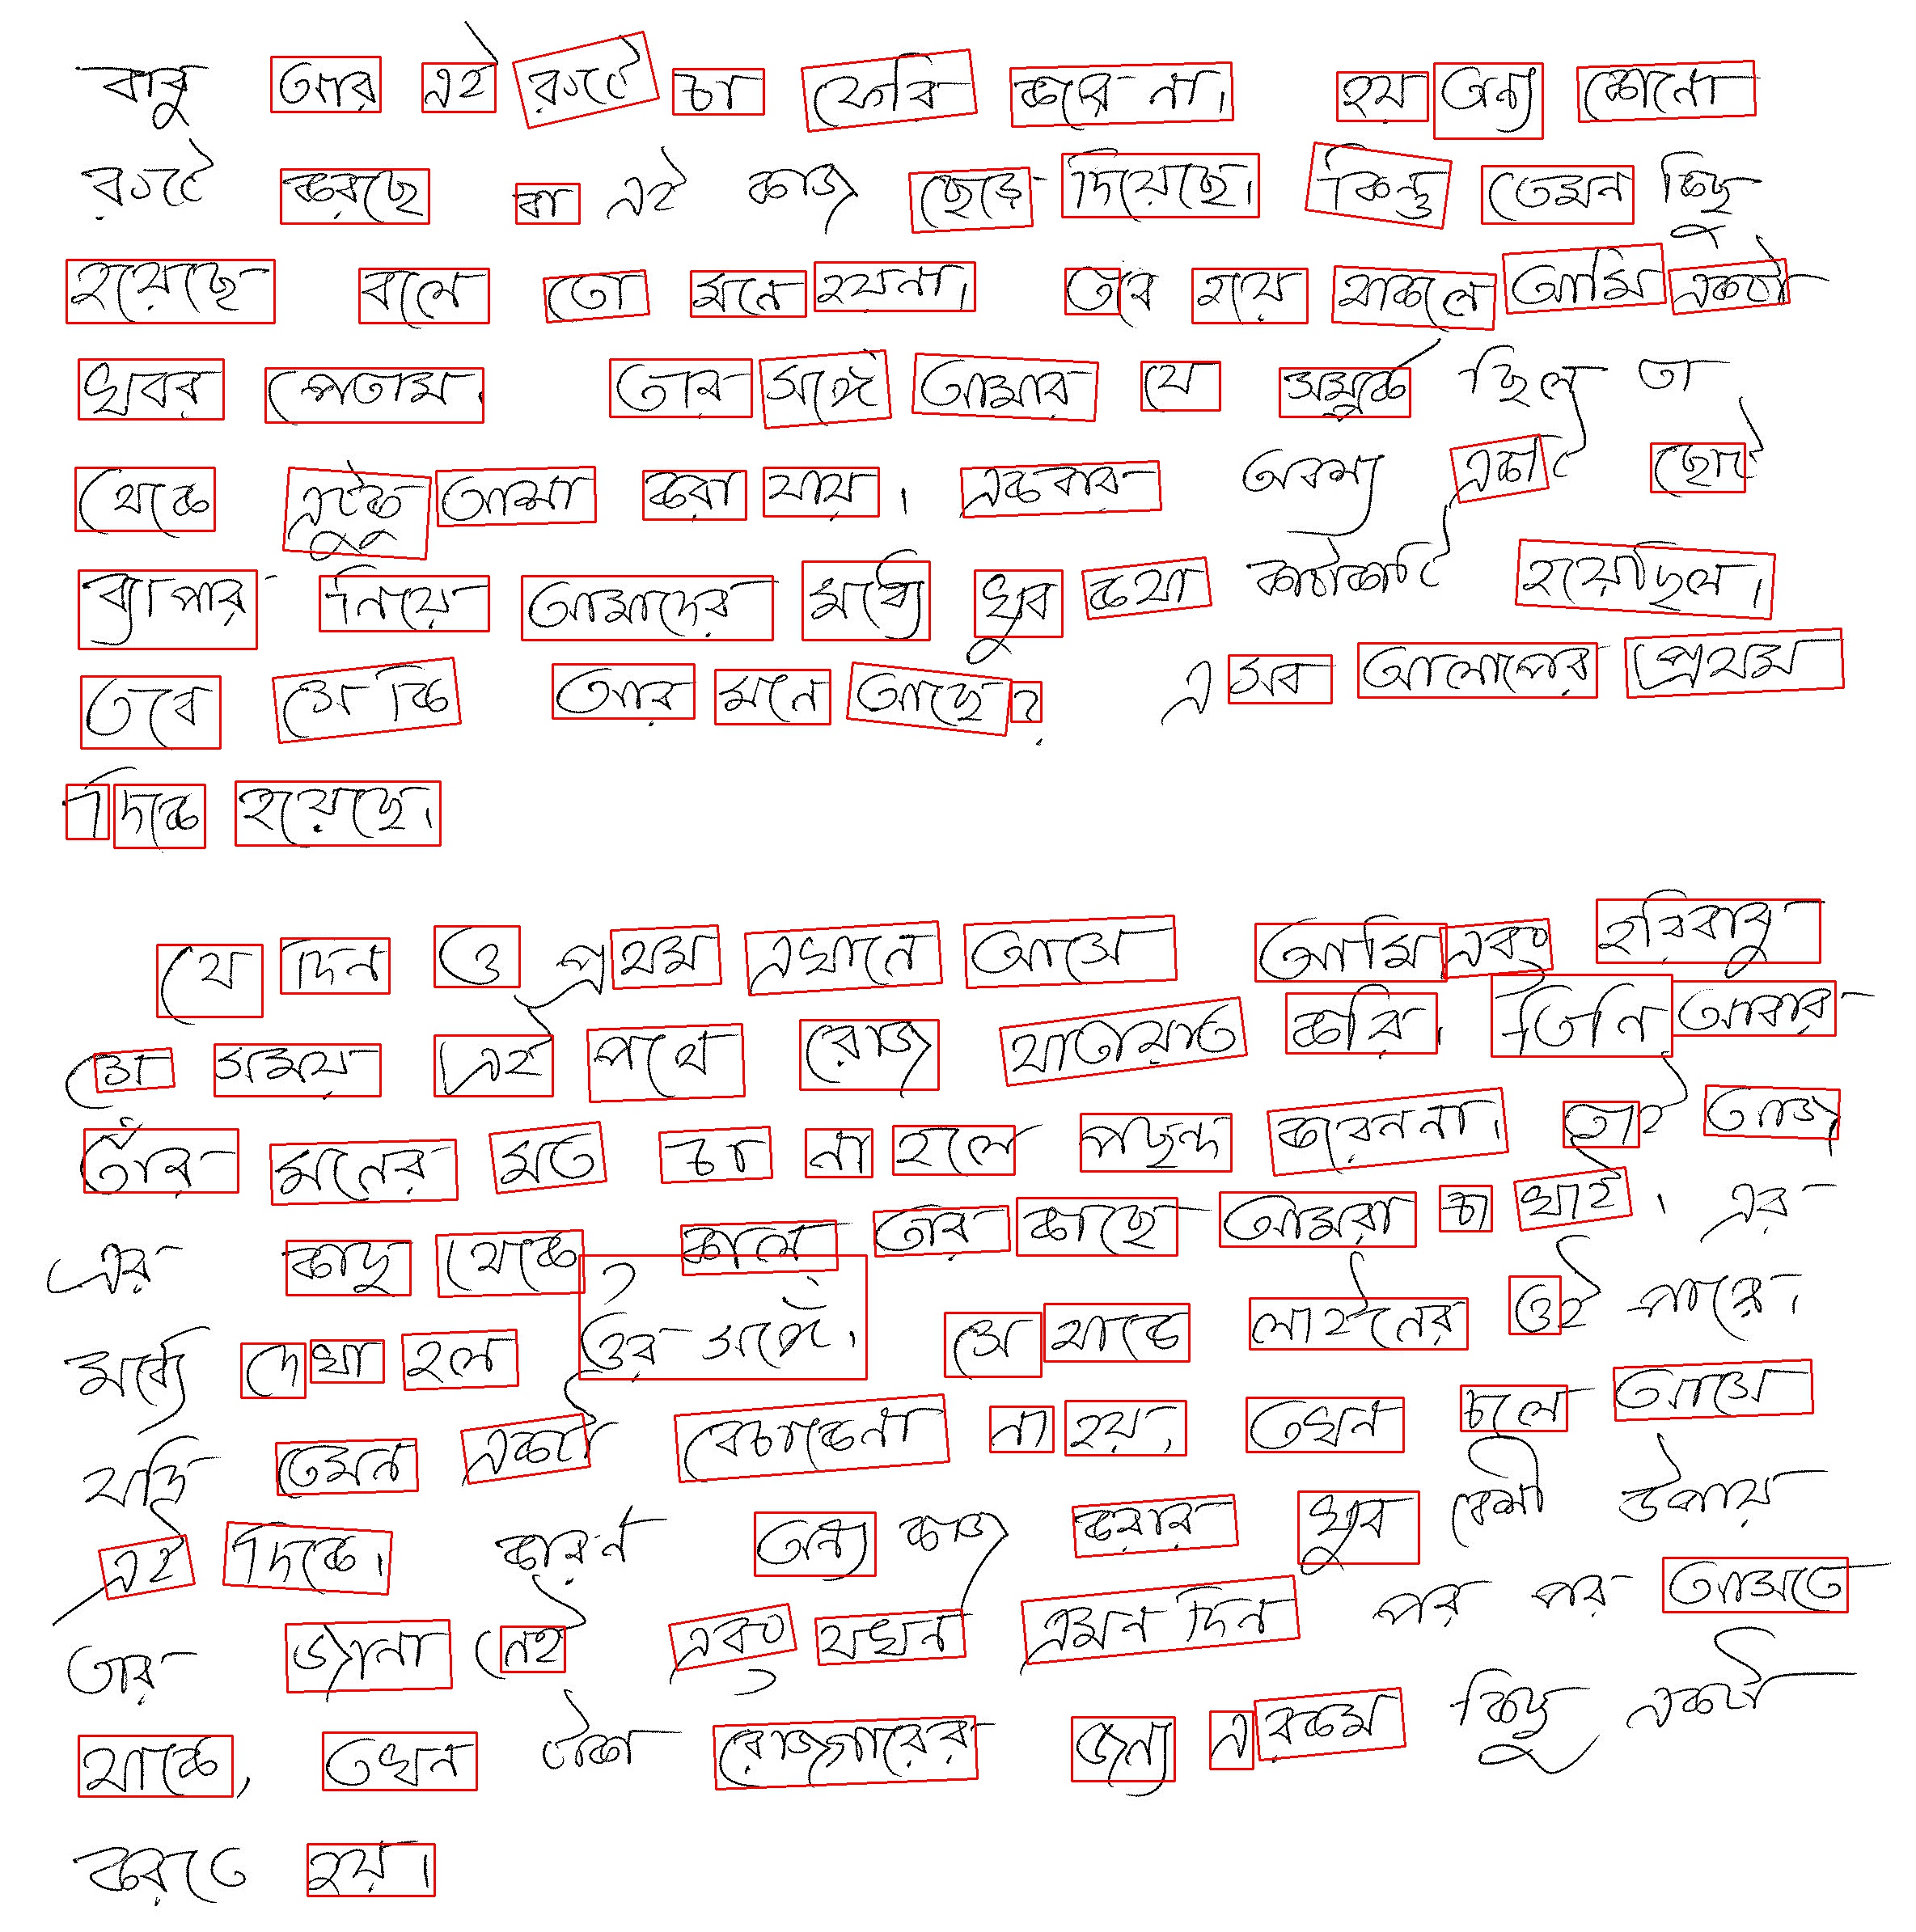 বাবু আর এই রুটে চা ফেরি করে না। হয় অন্য কোনো
রুটে করছে বা এই কাজ ছেড়ে দিয়েছে। কিন্তু তেমন কিছু
হয়েছে বলে তো মনে হয়না। তার হয়ে থাকলে আমি একটা
খবর পেতাম। তার সঙ্গে আমার যে সম্পর্ক ছিল তা
থেকে এটুকু আশা করা যায়। একবার অবশ্য একটি ছোট
ব্যাপার নিয়ে আমাদের মধ্যে খুব কথা কাটাকাটি হয়েছিল।
তবে সে কি আর মনে আছে? এ সব আলাপের প্রথম
দিকে হয়েছে।
যে দিন ও প্রথম এখানে আসে আমি এবং হরিবাবু
সে সময় এই পথে রোজ যাতায়াত করি। তিনি আবার
তাঁর মনের মত চা না হলে পছন্দ করেননা। তাই আজ
এর কাছ থেকে কাল তার কাছে আমরা চা খাই। এর
মধ্যে দেখা হল ওর সঙ্গে। সে থাকে লাইনের ওই পারে।
যদি তেমন একটা বেচাকেনা না হয়, তখন চলে আসে
এই দিকে। কারন অন্য কাজ করার খুব বেশী উপায়
তার জানা নেই এবং যখন এমন দিন পর পর আসতে
থাকে, তখন টাকা রোজগারের জন্য এ রকম কিছু একটা
করতে হয়।